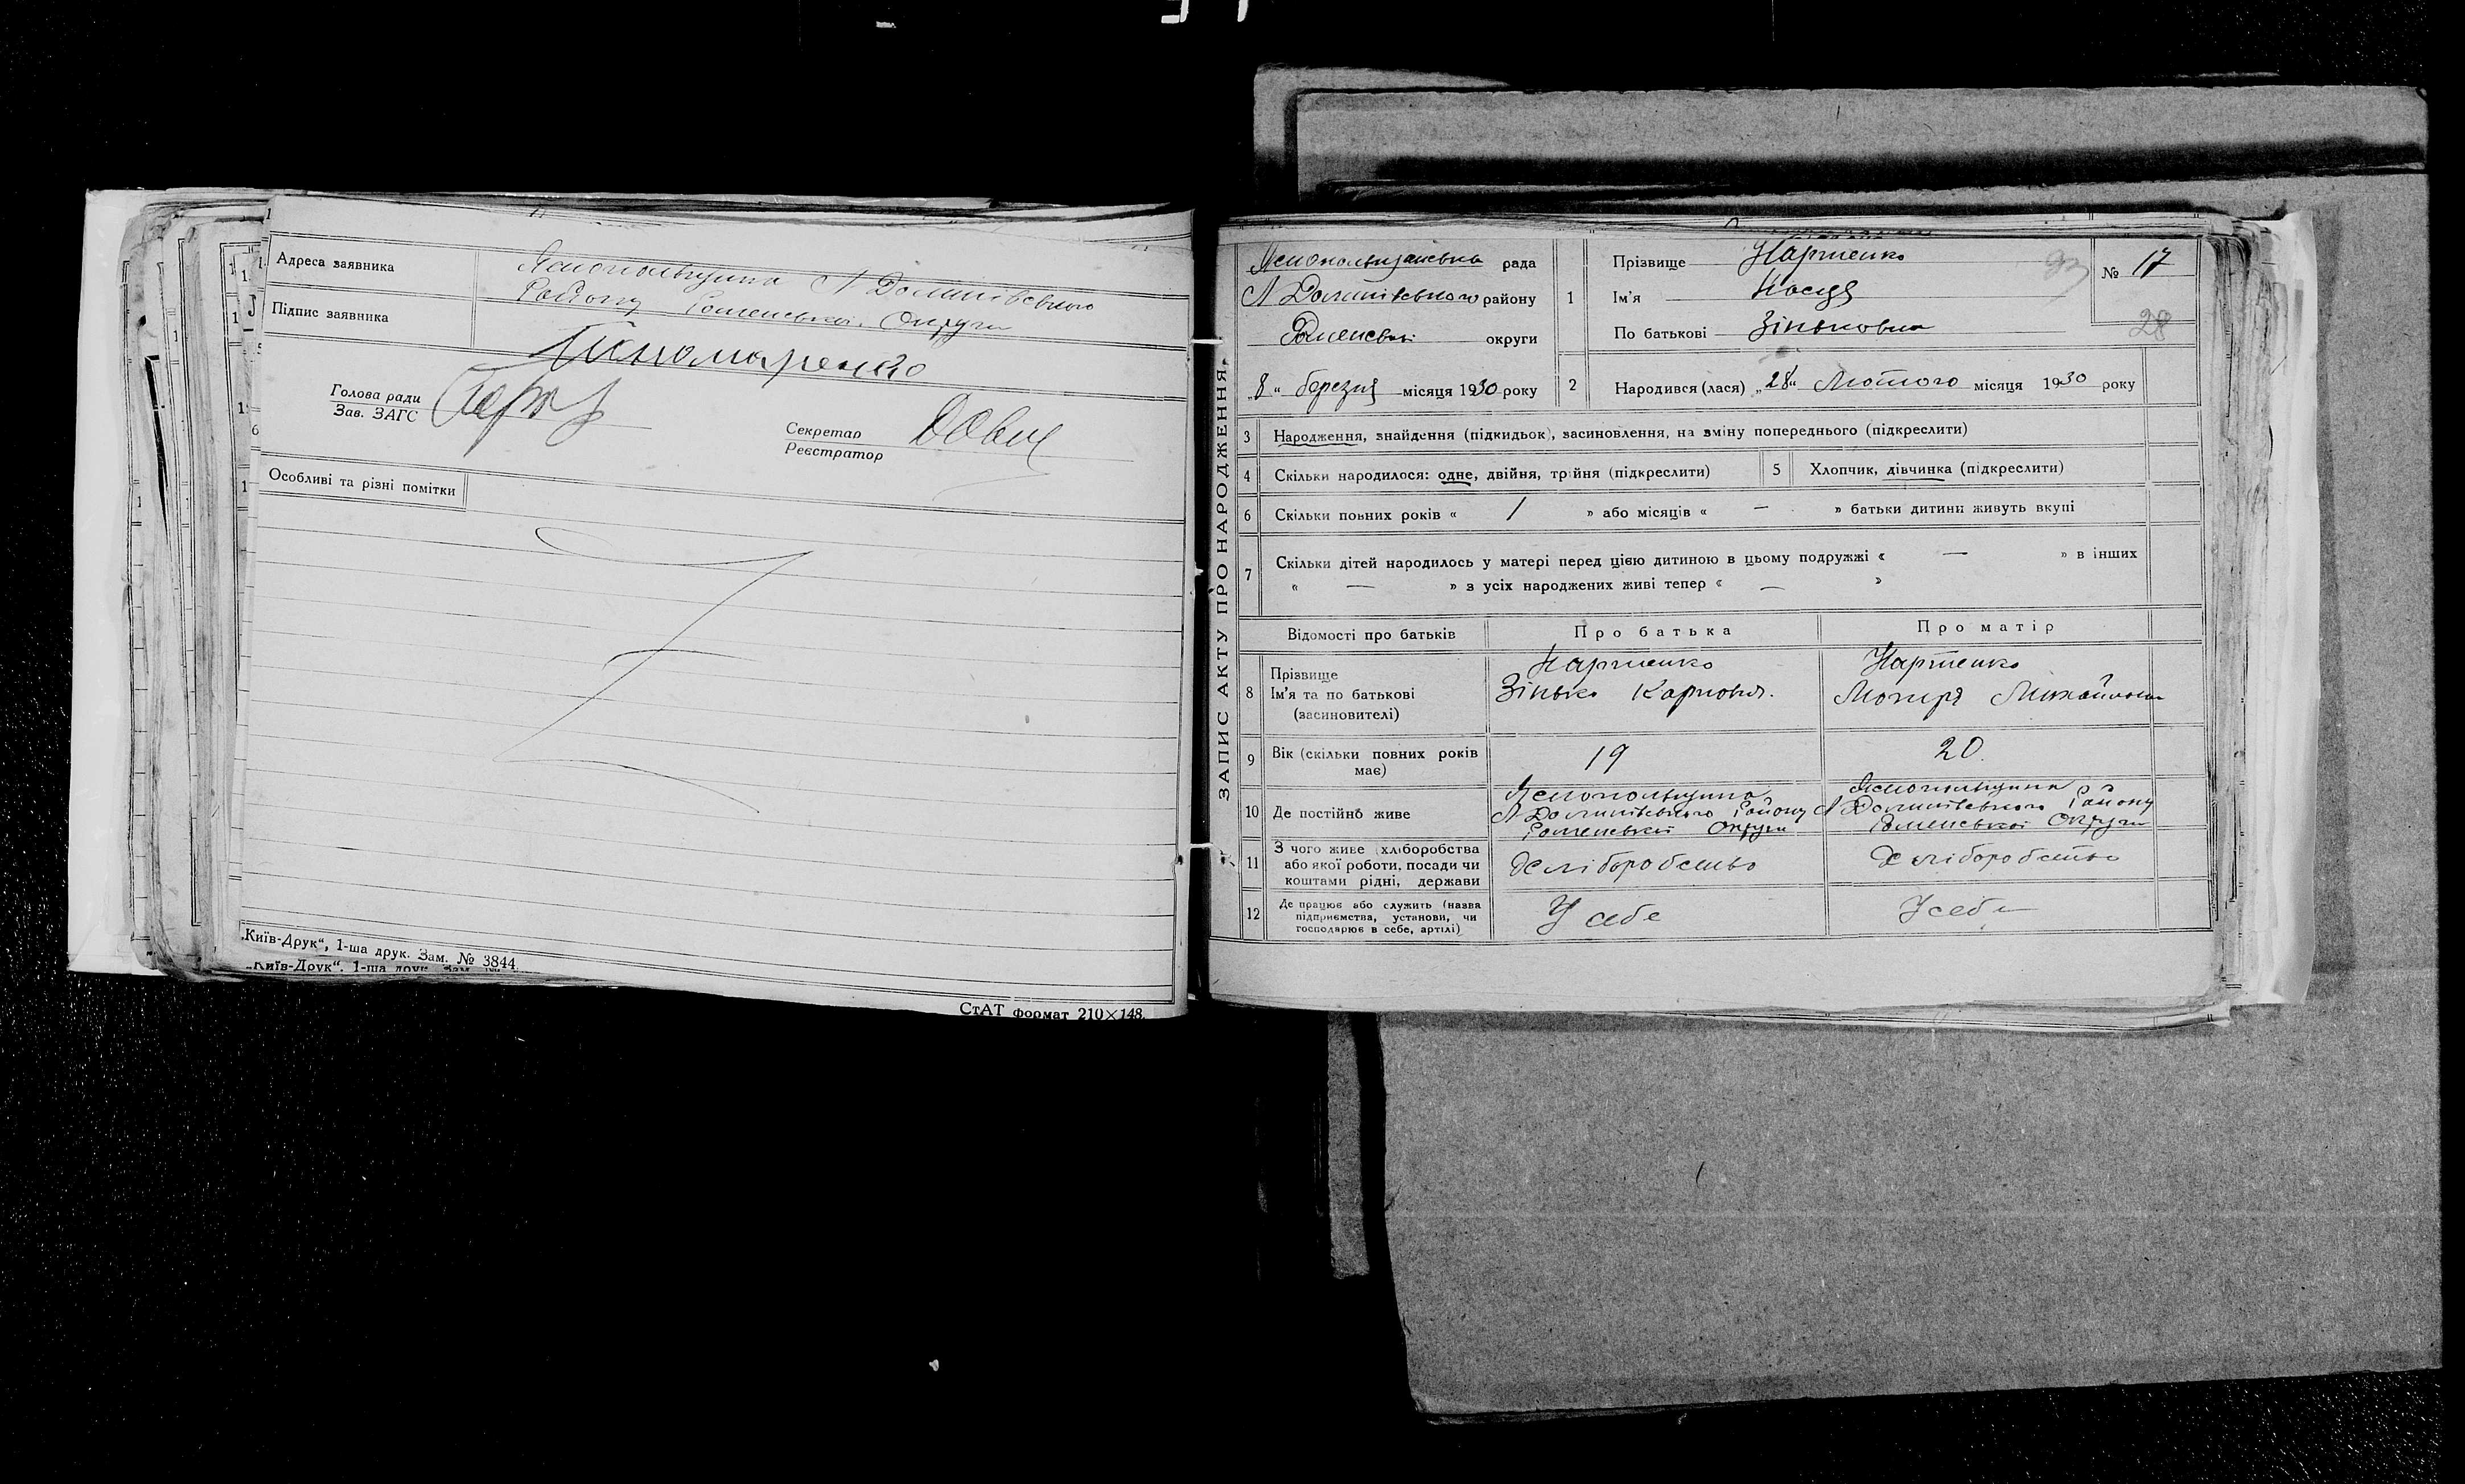 Адреса заявника
Яснопольщина Л Долинівського
Району Роменської Округи
Підпис заявника
Пономаренко
Голова ради
Зав. ЗАГС
Секретар
Реєстратор
Особливі та різні помітки
„Київ-Друк“, 1-ша друк. Зам. № 3844
„Київ-Друк“, 1-ша друк. Зам.
СтАТ формат 210×148.
ЗАПИС АКТУ ПРО НАРОДЖЕННЯ.
рада
Л Долинівського району
Роменської округи
„8“ березня місяця 1930 року
1
Прізвище Карпенко
Ім'я
По батькові Зіньковна
№ 17
93
28
2 Народився (лася) „28“ Лютого місяця 1930 року
3 Народження, знайдення (підкидьок), засиновлення, на зміну попереднього (підкреслити)
4 Скільки народилося: одне, двійня, трійня (підкреслити)
5 Хлопчик, дівчинка (підкреслити)
6 Скільки повних років « 1 » або місяців « — » батьки дитини живуть вкупі
7 Скільки дітей народилось у матері перед цією дитиною в цьому подружжі « — » в інших
« — » з усіх народжених живі тепер « — »
Відомості про батьків Про батька Про матір
8 Прізвище
Ім'я та по батькові
(засиновителі)
Карпенко
Зінько Карпович.
Карпенко
Мотря Михайловна
9 Вік (скільки повних років
має)
19
20.
10 Де постійно живе
Яснопольщина
Л Долинівського Району
Роменської Округи
Яснопольщина
Л Долинівського Району
Роменської Округи
11 З чого живе (хліборобства
або якої роботи, посади чи
коштами рідні, держави
Хліборобство
Хліборобство
12 Де працює або служить (назва
підприємства, установи, чи
господарює в себе, артілі)
У себе
У себе